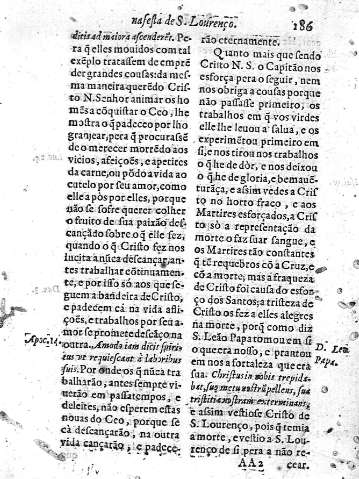 na festa de S. Lourenço.
186
ditis ad maiora ascenderẽt. Pe-
ra q̃ elles mouidos com tal
exẽplo tratassem de emprẽ
der grandes cousas: da mes-
ma maneira querẽdo Cris
to N. Senhor animar os ho
mẽs a cõquistar o Ceo, lhe
mostra o q̃ padeceo por lho
granjear, pera q̃ procurassẽ
de o merecer morrẽdo aos
vicios, afeições, e apetites
da carne, ou põdo a vida ao
cutelo por seu amor, como
elle a pòs por elles, porque
não se sofre querer colher
o fruito de sua paixão des-
cançãdo sobre o q̃ elle fez,
quando o q̃ Cristo fez nos
incita a nũca descançar, an-
tes trabalhar cõtinuamen-
te, e por isso só aos que se-
guem a bandeira de Cristo,
e padecem cà na vida afli-
ções, e trabalhos por seu a-
mor se promete descãço na
Apoc. 14.
outra. Amodo iam dicit spirit-
us vt requiescant à laboribus
suis. Por onde os q̃ nũca tra
balharão, antes sempre vi-
uerão em passatempos, e
deleites, não esperem estas
nouas do Ceo, porque se
cà descançarão, na outra
vida cançarão, e padece-
rão eternamente.
Quanto mais que sendo
Cristo N. S. o Capitão nos
esforça pera o seguir, nem
nos obriga a cousas porque
não passasse primeiro; os
trabalhos em q̃ vos virdes
elle lhe leuou a salua, e os
experimẽtou primeiro em
si, e nos tirou nos trabalhos
o q̃ he de dòr, e nos deixou
o q̃ he de gloria, e bemauẽ-
turãça, e assim vedes a Cris
to no horto fraco, e aos
Martires esforçados, a Cris
to sò a representação da
morte o faz suar sangue, e
os Martires tão constantes
q̃ tẽ requebros cõ a Cruz, e
cõ a morte, mas a fraqueza
de Cristo foi causa do esfor-
ço dos Santos; a tristeza de
Cristo os fez a elles alegres
na morte, porq̃ como diz
D. Leã
Papa.
S. Leão Papa tomou em si
o que era nosso, e prantou
em nos a fortaleza que era
sua. Christus in nobis trepida-
bat, suo metu nostrũ pellens, sua
tristitia nostram exterminans,
e assim vestiose Cristo de
S. Lourenço, pois q̃ temia
a morte, e vestio a S. Lou-
renço de si pera a não re-
AA 2
cear.